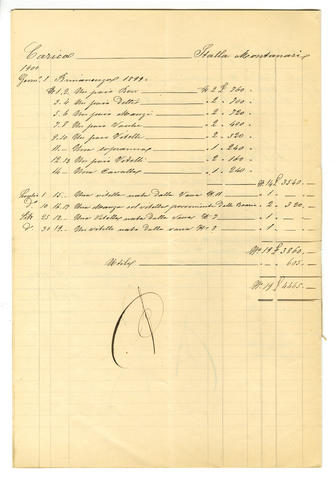 Carico Stalla Montanari
1900
Genn.º 1 Rimanenza 1899
N. 1.2 Un paio Bovi N. 2 £ 760
3.4 Un paio Detti " 2 " 700
5.6 Un paio Manzi " 2 " 320
7.8 Un paio Vacche " 2 " 400
9.10 Un paio Vitelli " 2 " 320
11 Una sopranna " 1 " 240
12.13 Un paio Vitelli " 2 " 160
14 Una Cavalla " 1 " 240
N. 14 £ 3540
Luglio 1 15 Una vitella nata dalla Vacca N. 11 " 1
dº 10 16.17 Una Manza col vitello proveniente dalla " 2 " 320
25 18 Una Vitella nata dalla Vacca N. 7 " 1
dº 30 19 Un vitello nato dalla vacca N. 8 " 1
N. 19 £ 3860
Utile " 605
N. 19 £ 4465